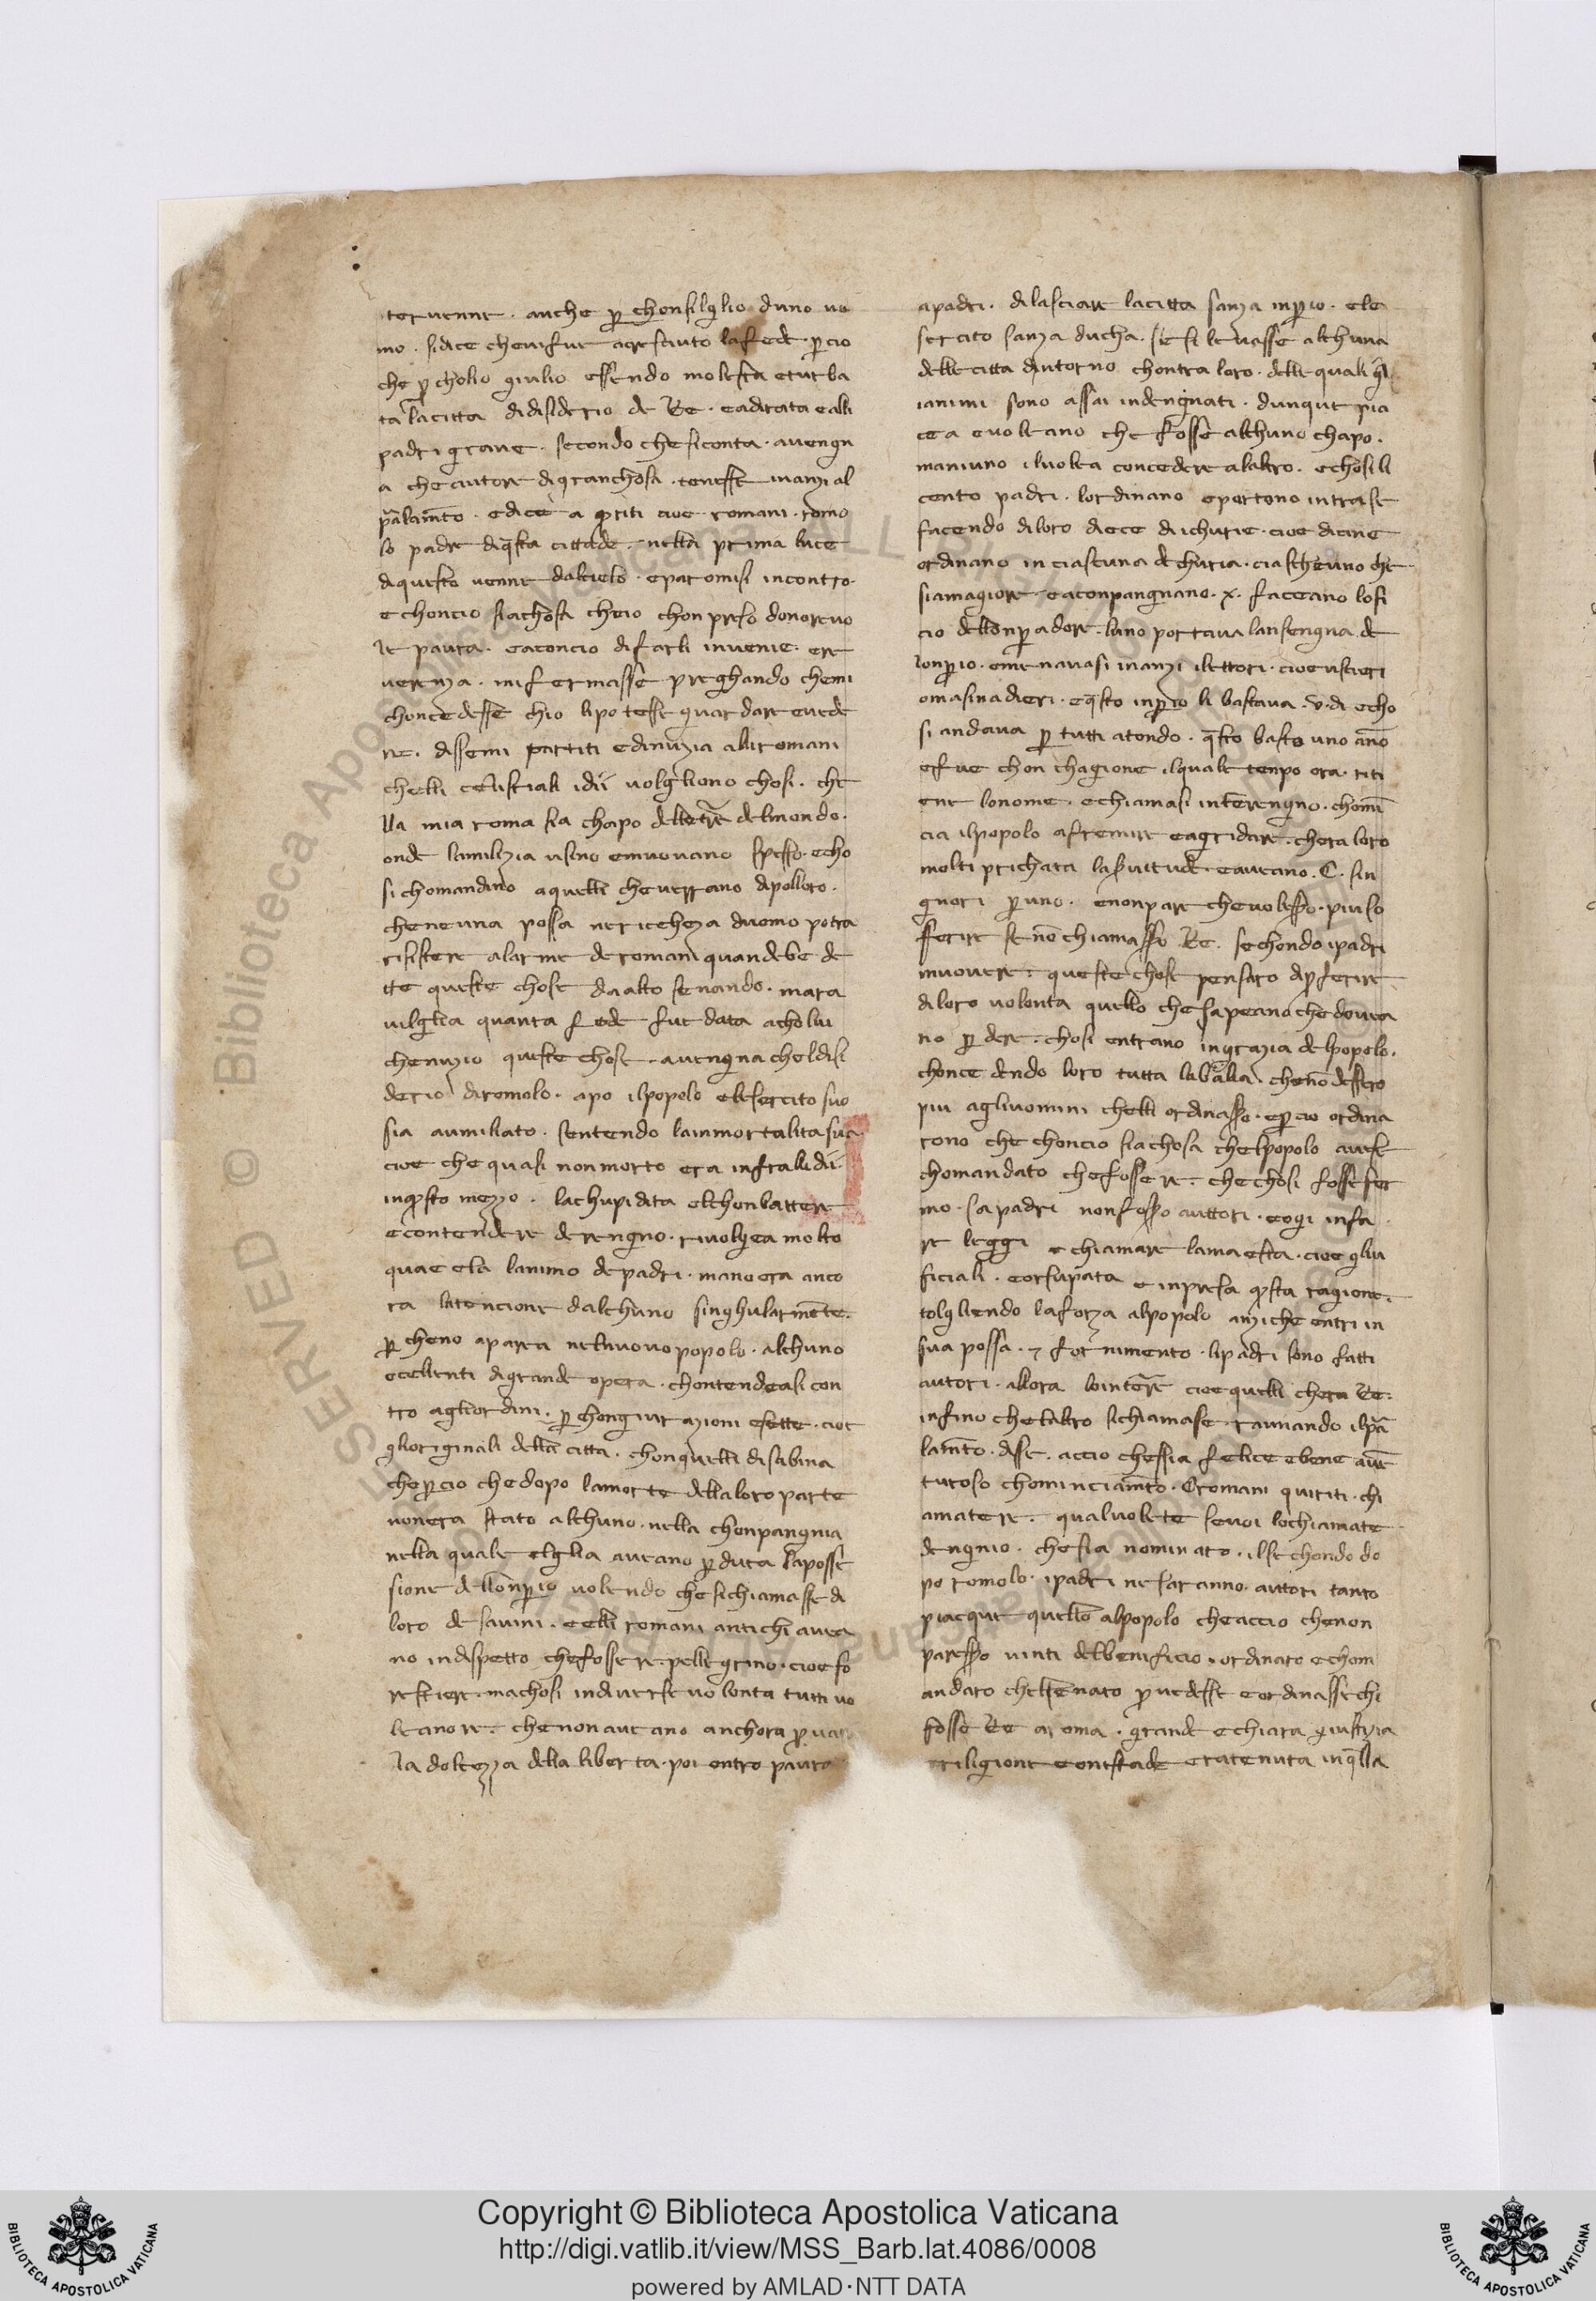 teruenne · anche p̲ chonsilglio duno uo
mo · sidice cheuifue acresciuto lafede · p̲cio
che p̲cholio giulio essendo molesta eturba
ta lacitta didisiderio de Re · eadirata ealli
padri graue · secondo chesiconta · auengn
a cheautore digranchosa · tenesse inanzi al
p̄alam̄to · edice a q̲riti cioe romani · romo
lo padre diq̄sta cittade · nella prima luce
diquesto uenne dalcielo · eparomisi incontro ·
echoncio siachosa cheio chonpreso donoreuo
le paura · eaconcio difarli inuenie · ere
uerenza · mifermasse preghando chemi
choncedesse chio lipotesse guardare euede
re · dissemi partiti edinuzia alliromani
chelli celistiali idii uolgliono chosi · che
lla mia roma sia chapo delleter̄e delmondo ·
onde lamilizia usino emuouano spesso · echo
si chomandino aquelli cheuerrano dipolloro ·
cheneuna possa nericheza duomo potra
risistere alarme deromani quandebe de
tte queste chose daalto senando · mara
uilglia quanta fede fue data acholui
chenuzio queste chose · auengna cheldisi
derio diromolo · apo ilpopolo elesercito suo
sia aumiliato · sentendo lainmortalita sua
cioe che quasi nonmorto era infrallidii ·
inq̲sto mezzo · lachupidita elchonbattere
econtendere derengno · riuolgea molto
quae ela lanimo depadri · manoera anco
ra latencione dalchuno singhularm̄ente ·
p̲ cheno aparea nelnuouo popolo · alchuno
ecellenti digrande opera · chontendeasi con
tro agliordini · p̲ chongiurazioni esette · cioe
glioriginali della citta · chonquelli disabina
chep̲cio chedopo lamorte dellaloro parte
nonera stato alchuno · nella chonpangnia
nella quale elglia aueano p̲duta laposse
sione dellonp̲io uolendo chesichiamasse di
loro de sauini · eelli romani antichi auea
no indispetto chefosse re · pellegrino · cioe fo
restiere · machosi indiuerse uolonta tutti uo
leano re · chenonaueano anchora p̲uat
la dolcezza della liberta · poi entro paura
apadri · dilasciare lacitta sanza inp̲io · ele
sercito sanza ducha · siesi leuasse alchuna
delle citta dintorno chontra loro · delle quali gli
ianimi sono assai indengnati · dunque pia
cea euoleano che fosse alchuno chapo ·
maniuno iluolea concedere alaltro · echosi li
cento padri · lordinano epartono intrase
facendo diloro diece dichurie · cioe dicine
ordinano in ciascuna dechuria · ciascheuno che
siamagiore · eaconpangnano · x · faceano lofi
cio dellonp̲adore · luno portaua lansengna de
lonp̲io · emenauasi inanzi ilettori · cioeuscieri
omasinadieri · eq̄sto inp̲io li bastaua · v · di echo
si andaua p̲ tutti atondo · q̄sto basto uno ano
efue chon chagione ilquale tenpo ora · riti
ene lonome · echiamasi inter̄engno · chomi
cia ilpopolo afremire eagridare · chera loro
molti prichata las̲uitude · eaueano · C · sin
gnori p̲uno · enonpare cheuolesso · piu so
fferire seno chiamasso Re · sechondo ipadri
muouere · queste chose pensaro dip̲ferire
diloro uolonta quello chesapeano chedouea
no p̲dere · chosi entrano ingrazia delpopolo ·
choncedendo loro tutta labalia · cheno dessero
piu agliuomini chelli ordinasso · ep̲cio ordina
rono che choncio siachosa chelpopolo auese
chomandato chefosse re · chechosi fosse fer
mo · sapadri nonfosso auttori · eogi infa
re leggi echiamare lamaesta · cioe gliu
ficiali · eorsupata e inpresa q̲sta ragione ·
tolgliendo laforza alpopolo anziche entri in
sua possa · ⁊ fornimento · lipadri sono fatti
autori · allora lointer̄e cioe quelli chera Re ·
infino chelaltro sichiamase · raunando ilp̄a
lam̄to · disse · accio chessia felice ebene aue
turoso chominciam̄to · Oromani quiriti · chi
amate re · qualuolete seuoi lochiamate
dengnio · chesia nominato · ilsechondo do
po romolo · ipadri nesaranno auttori tanto
piacque quello alpopolo cheaccio chenon
paresso uinti delbenificio · ordinaro echom
andaro chelsenato p̲uedesse eordinasse chi
fosse Re aroma · grande echiara giustizia
eriligione eonestade eratenuta inq̄lla
Copyright © Biblioteca Apostolica Vaticana
http://digi.vatlib.it/view/MSS_Barb.lat.4086/0008
powered by AMLAD·NTT DATA